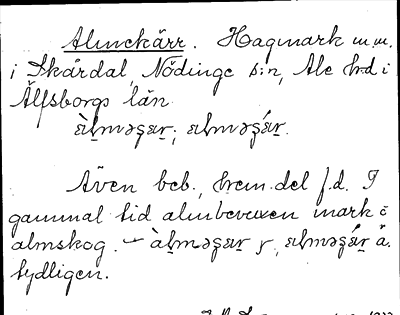 Almekärr. Hagmark m.m.
i Skårdal, Nödinge s:n, Ale h-d i
Älfsborgs län
àl̥məʂæɽ; ælməʂǽɽ.
Även beb., hem.del f.d. I
gammal tid almbevuxen mark =
almskog. – àl̥məʂæɽ y, ælməʂǽɽ ä.
tydligen.